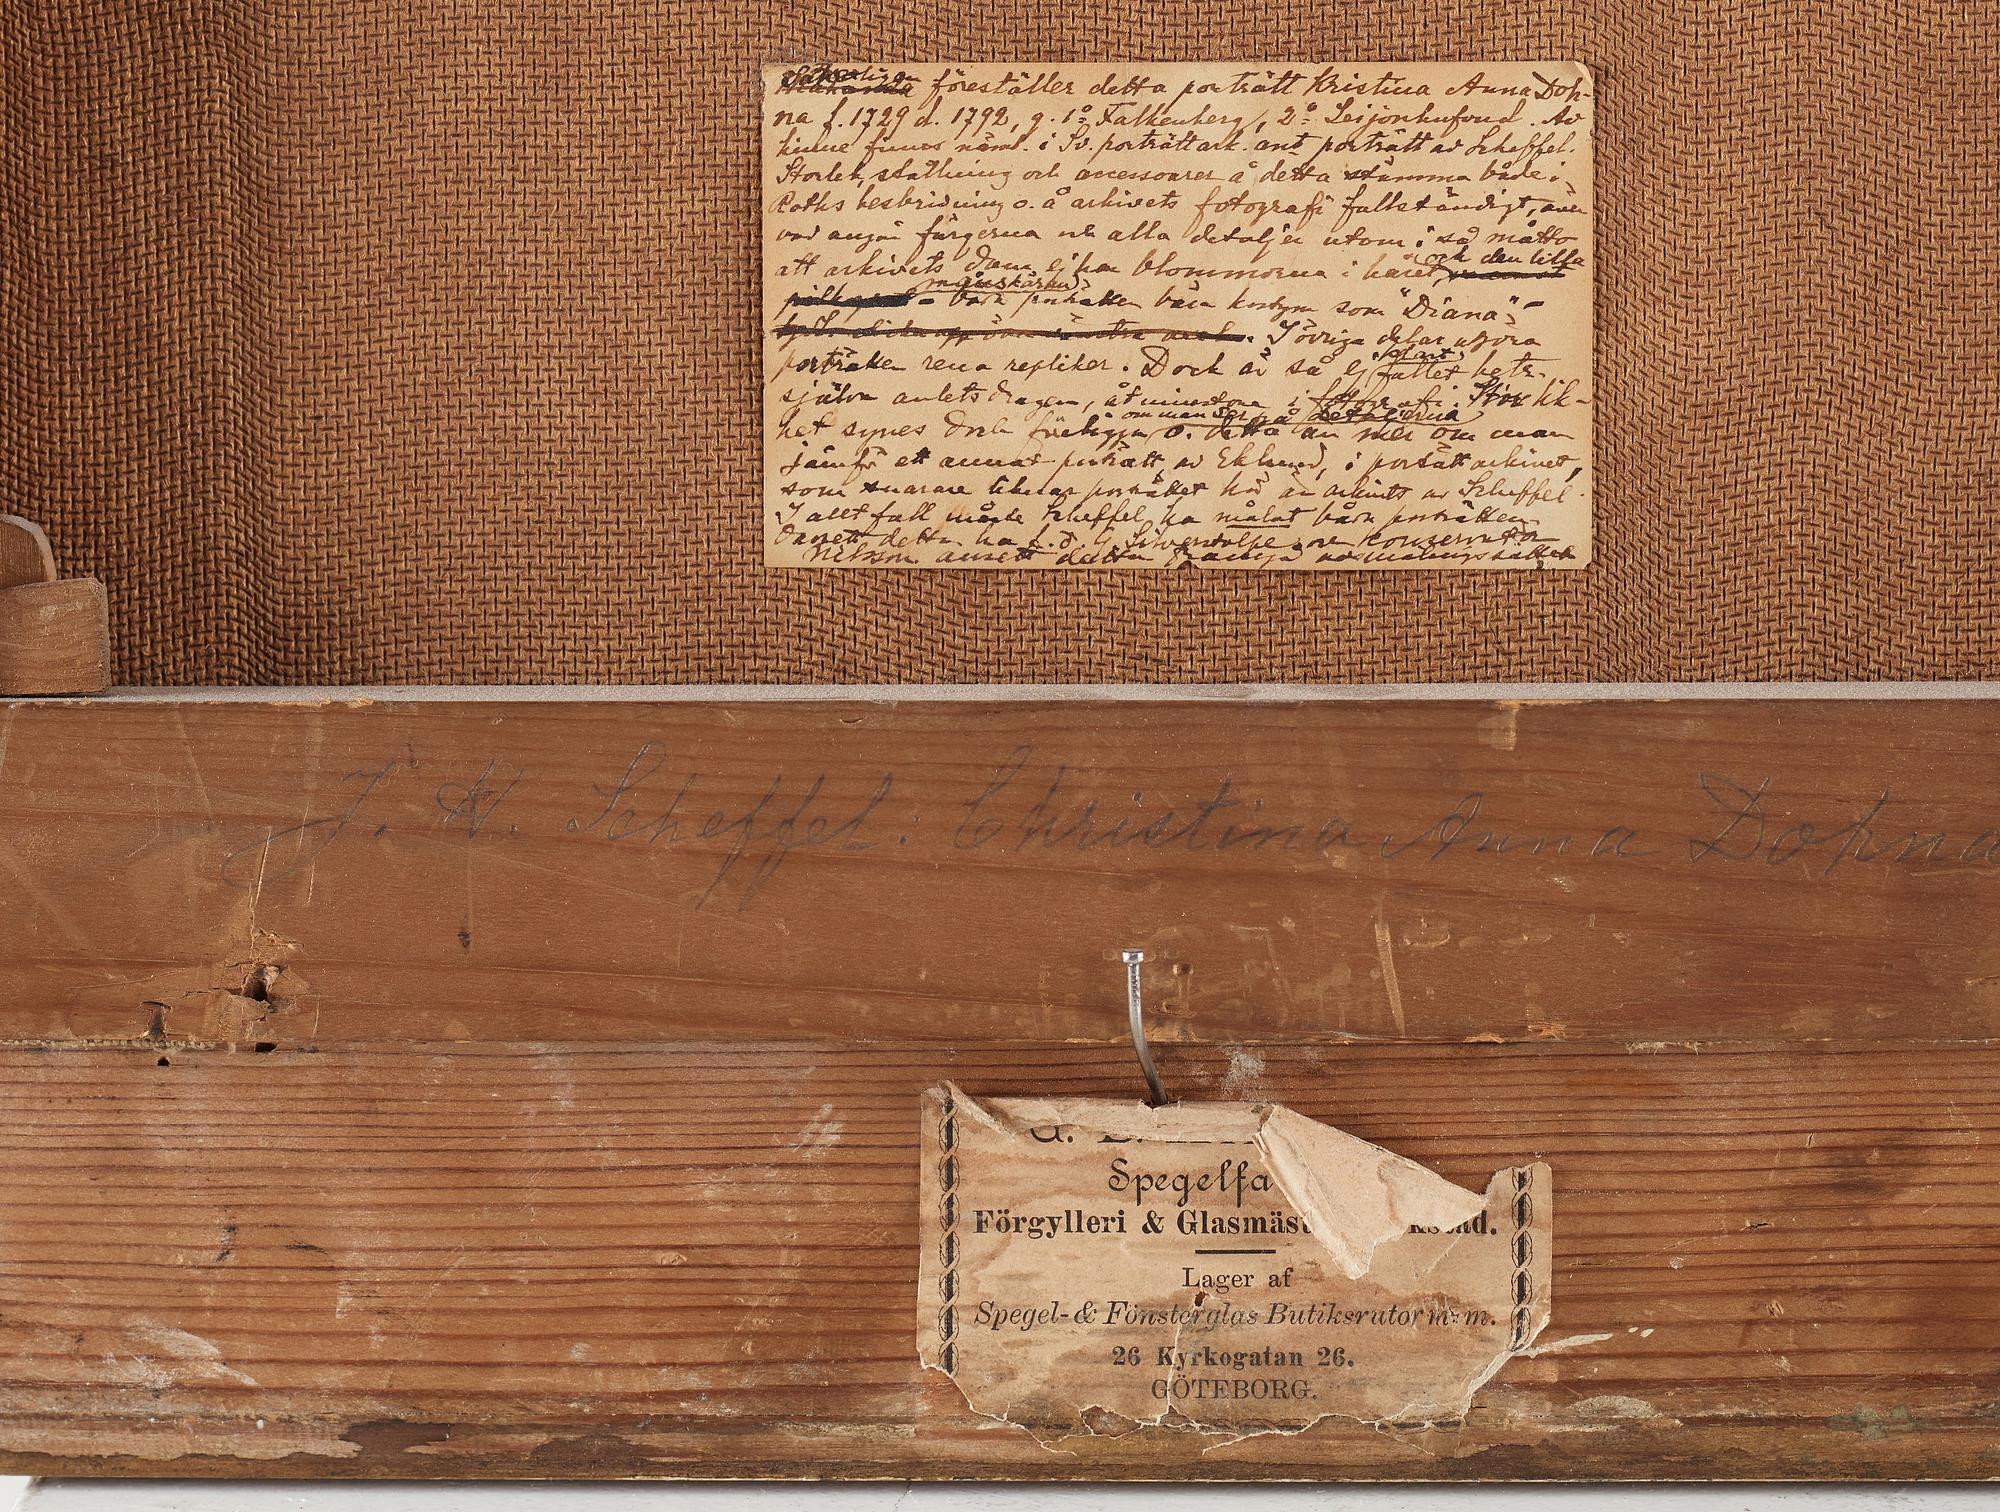 föreställer detta porträtt Kristina Anna Doh-
na f. 1729 d. 1792, g. 1º Falkenberg, 2º Leijonhufvud. Av
henne finnes näml. i Sv. porträttark. ant porträtt av Scheffel.
Storlek, ställning och accessoarer å detta stämma både i
Roths beskrivning o. å arkivets fotografi fullständigt, även
vad angår färgerna och alla detaljer utom i så måtto
och den lilla
att arkivets dam ej har blommorna i håret,
månskäran
båda porträtten bära kostym som "Diana",-
. I övriga delar utgöra
porträtten rena repliker. Dock är så ej fallet betr.
själva anletsdragen, åtminstone i fotografi. Stor lik-
om man ser å detaljerna
het synes dock föreligga o. detta än mer om man
jämför ett annat porträtt, av Eklund, i porträttarkivet,
som snarare liknar porträttet här än arkivets av Scheffel.
I allt fall måste Scheffel ha målat båda porträtten.
detta ha f. d. G. Silverstolpe och konservator
Nilsson ansett detta
J. H. Scheffel: Christina Anna Dohna
G.
Spegelfa
Förgylleri & Glasmäst kstad.
Lager af
Spegel- & Fönsterglas Butiksrutor m. m.
26 Kyrkogatan 26.
GÖTEBORG.